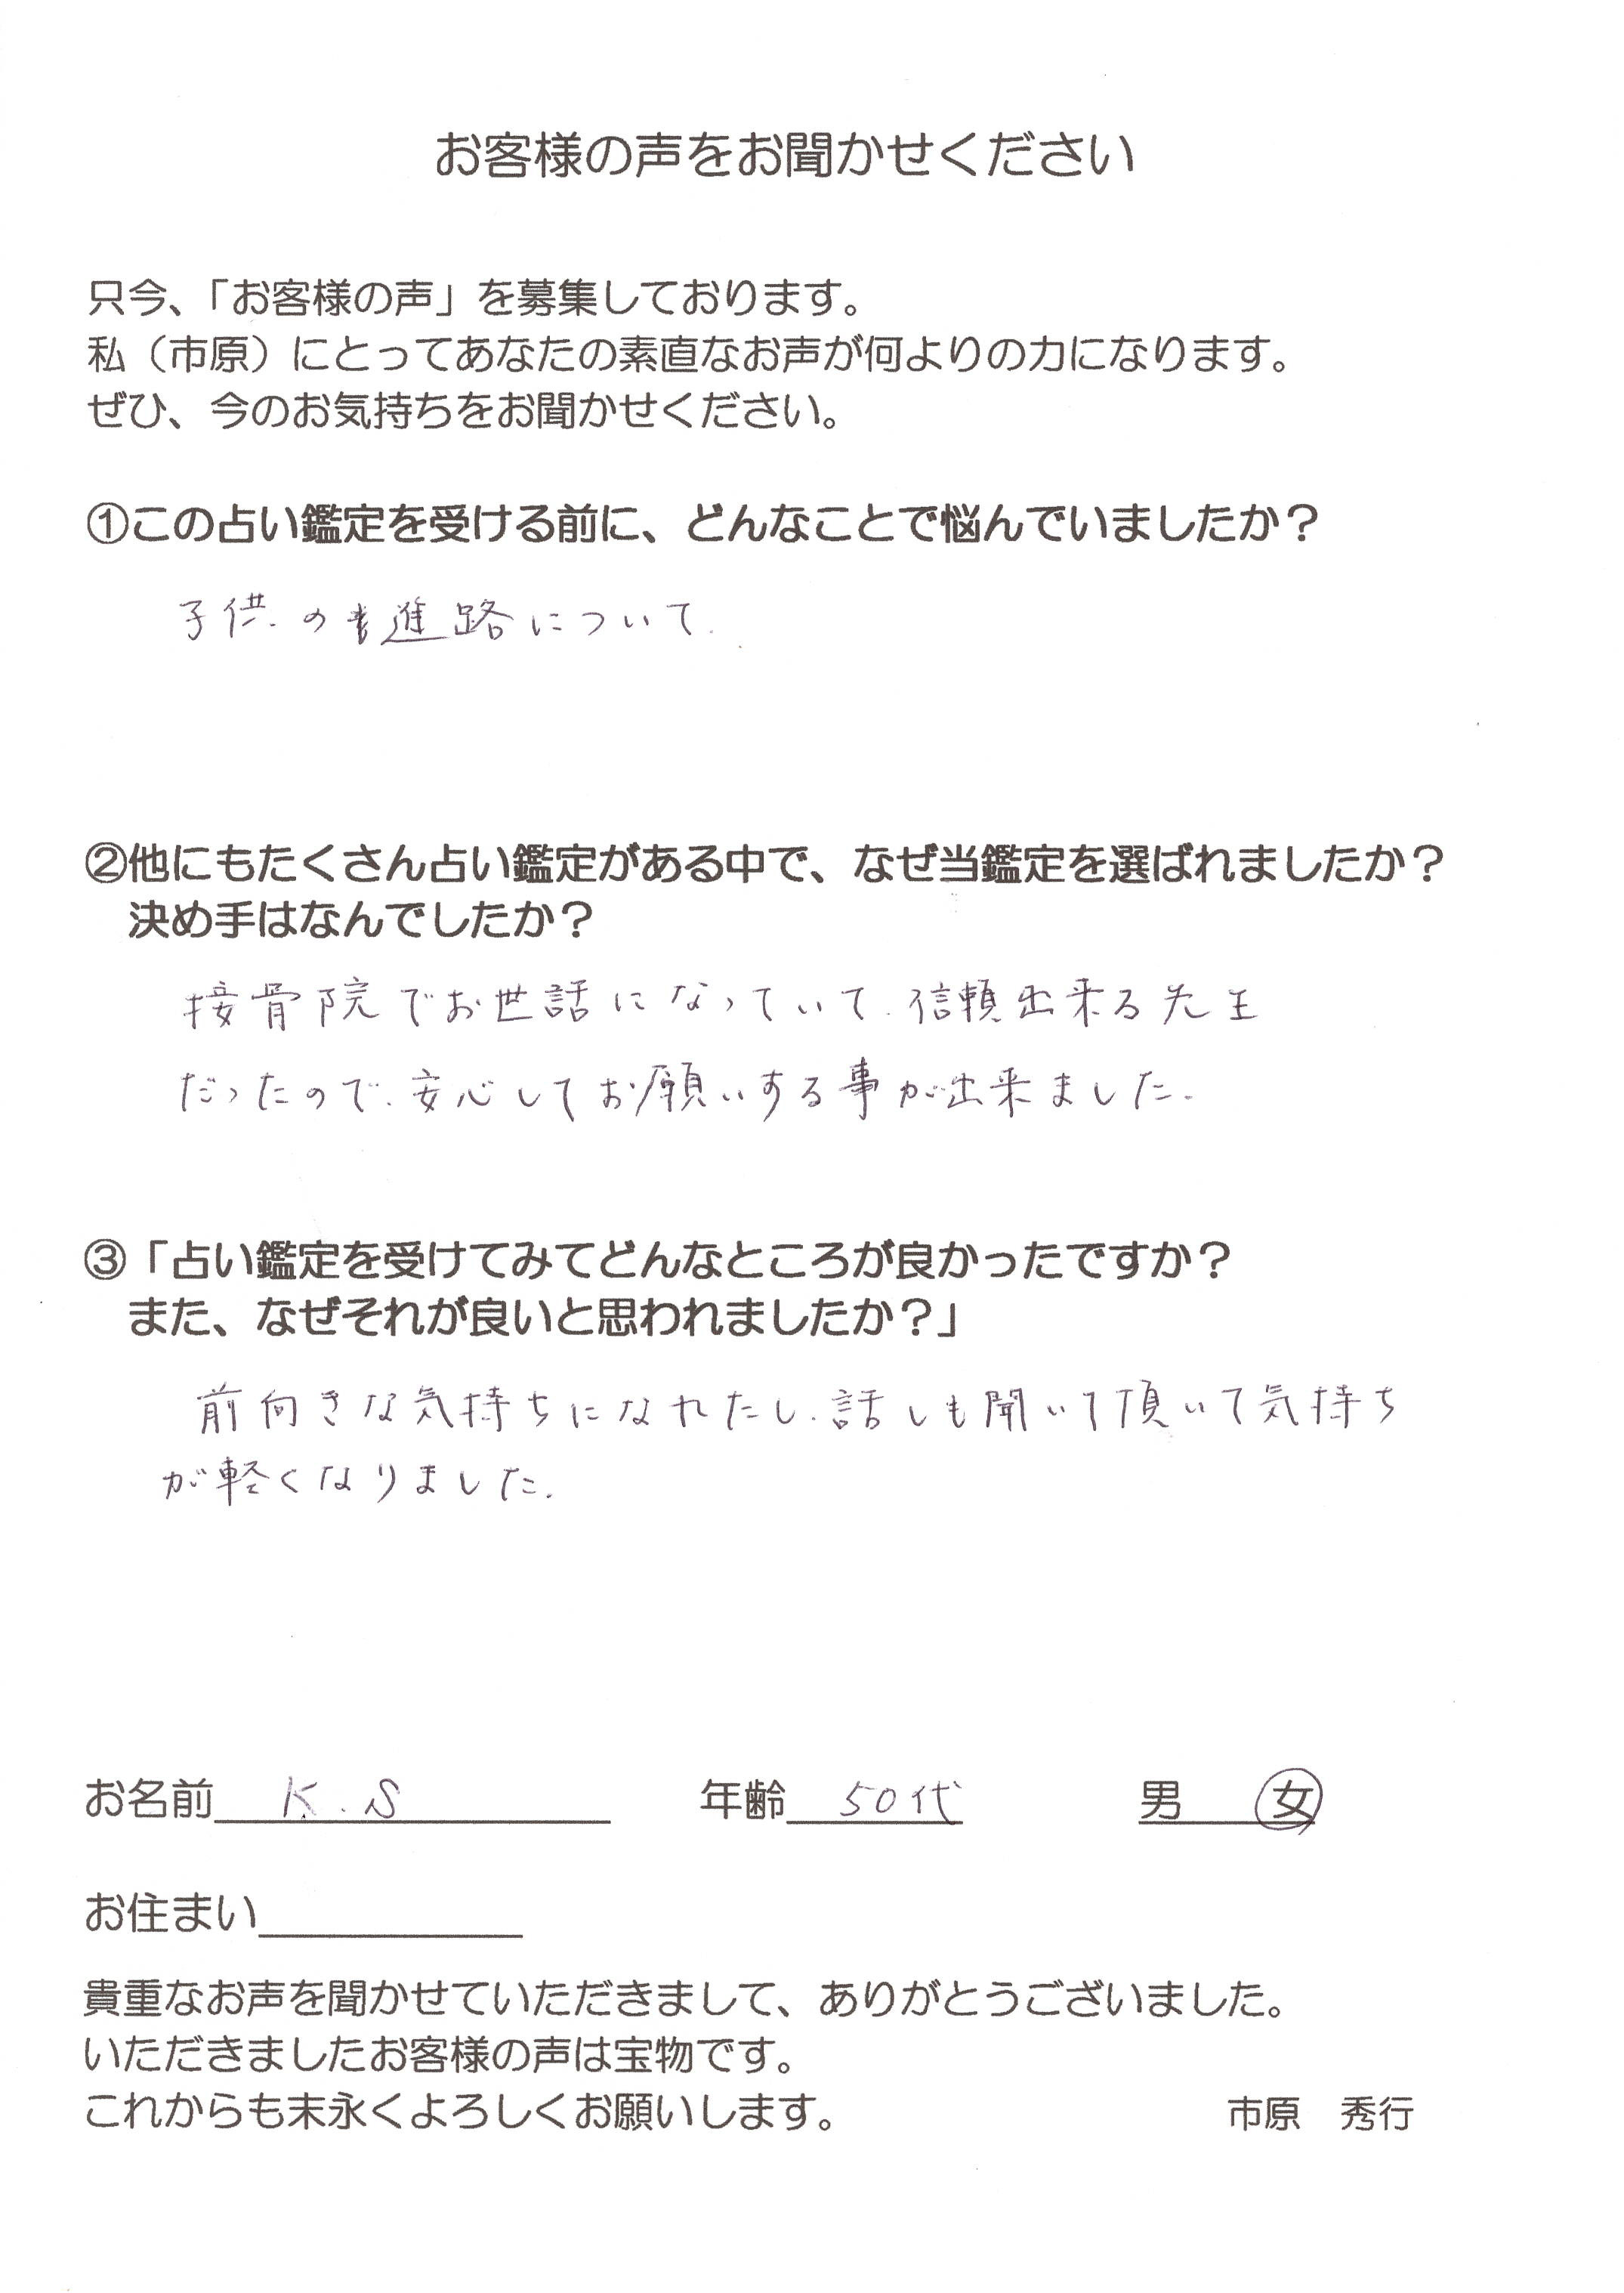 お客様の声をお聞かせください
只今、「お客様の声」を募集しております。
私（市原）にとってあなたの素直なお声が何よりの力になります。
ぜひ、今のお気持ちをお聞かせください。
①この占い鑑定を受ける前に、どんなことで悩んでいましたか？
子供の進路について.
②他にもたくさん占い鑑定がある中で、なぜ当鑑定を選ばれましたか？
決め手はなんでしたか？
接骨院でお世話になっていて、信頼出来る先生
だったので、安心してお願いする事が出来ました.
③「占い鑑定を受けてみてどんなところが良かったですか？
また、なぜそれが良いと思われましたか？」
前向きな気持ちになれたし、話しも聞いて頂いて気持ち
が軽くなりました.
お名前 K.S 年齢 50代 男 女
お住まい
貴重なお声を聞かせていただきまして、ありがとうございました。
いただきましたお客様の声は宝物です。
これからも末永くよろしくお願いします。 市原 秀行